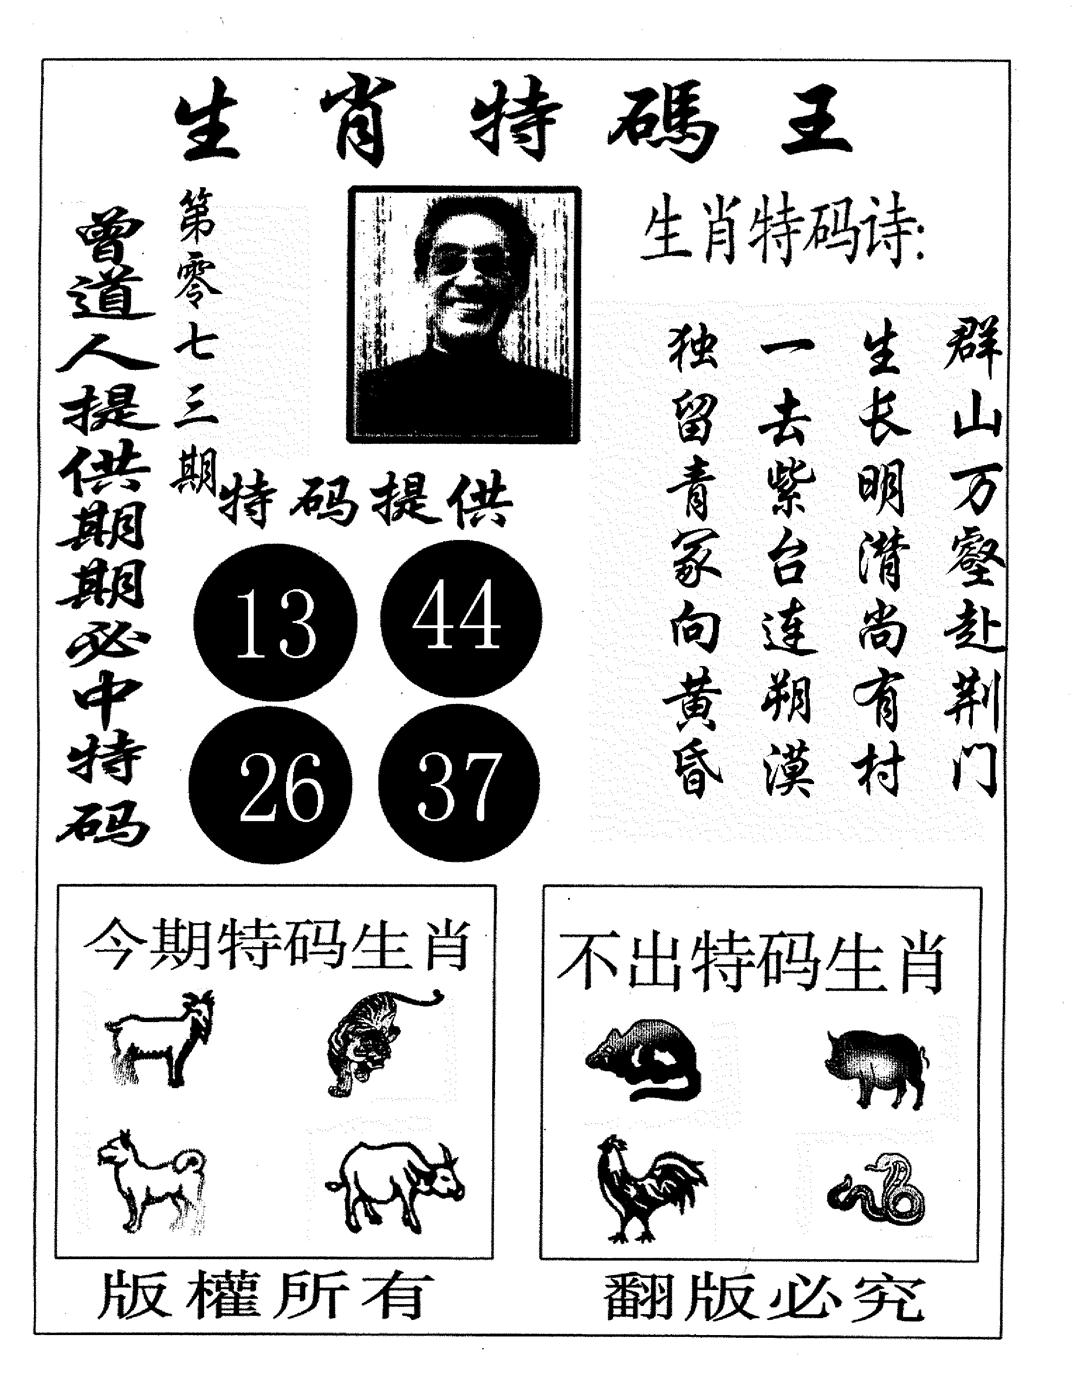 生肖特碼王
曾道人提供期期必中特码
第零七三期
特码提供
13 44
26 37
生肖特码诗:
群山万壑赴荆门
生长明潸尚有村
一去紫台连朔漠
独留青冢向黄昏
今期特码生肖
不出特码生肖
版權所有
翻版必究